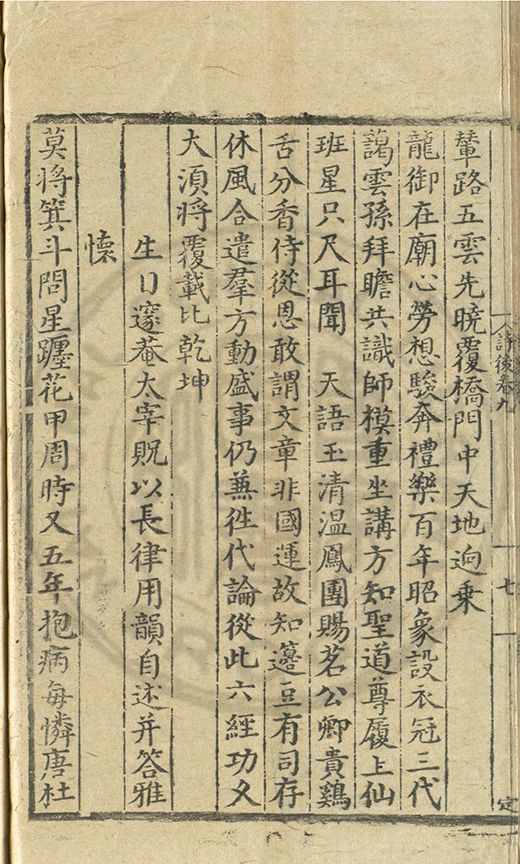 輦路五雲先曉覆橋門中天地逈乗
龍御在廟心勞想駿奔禮樂百年昭象設衣冠三代
藹雲孫拜瞻共識師模重坐講方知聖道尊履上仙
班星只尺耳聞　天語玉清温鳳團賜茗公卿貴鷄
舌分香侍從恩敢謂文章非國運故知籩豆有司存
休風合遣羣方動盛事仍兼徃代論從此六經功又
大須將覆載比乾坤
生日邃菴太宰貺以長律用韻自述并答雅
懷
莫將箕斗問星躔花甲周時又五年抱病每憐唐杜
詩後卷九
七
定